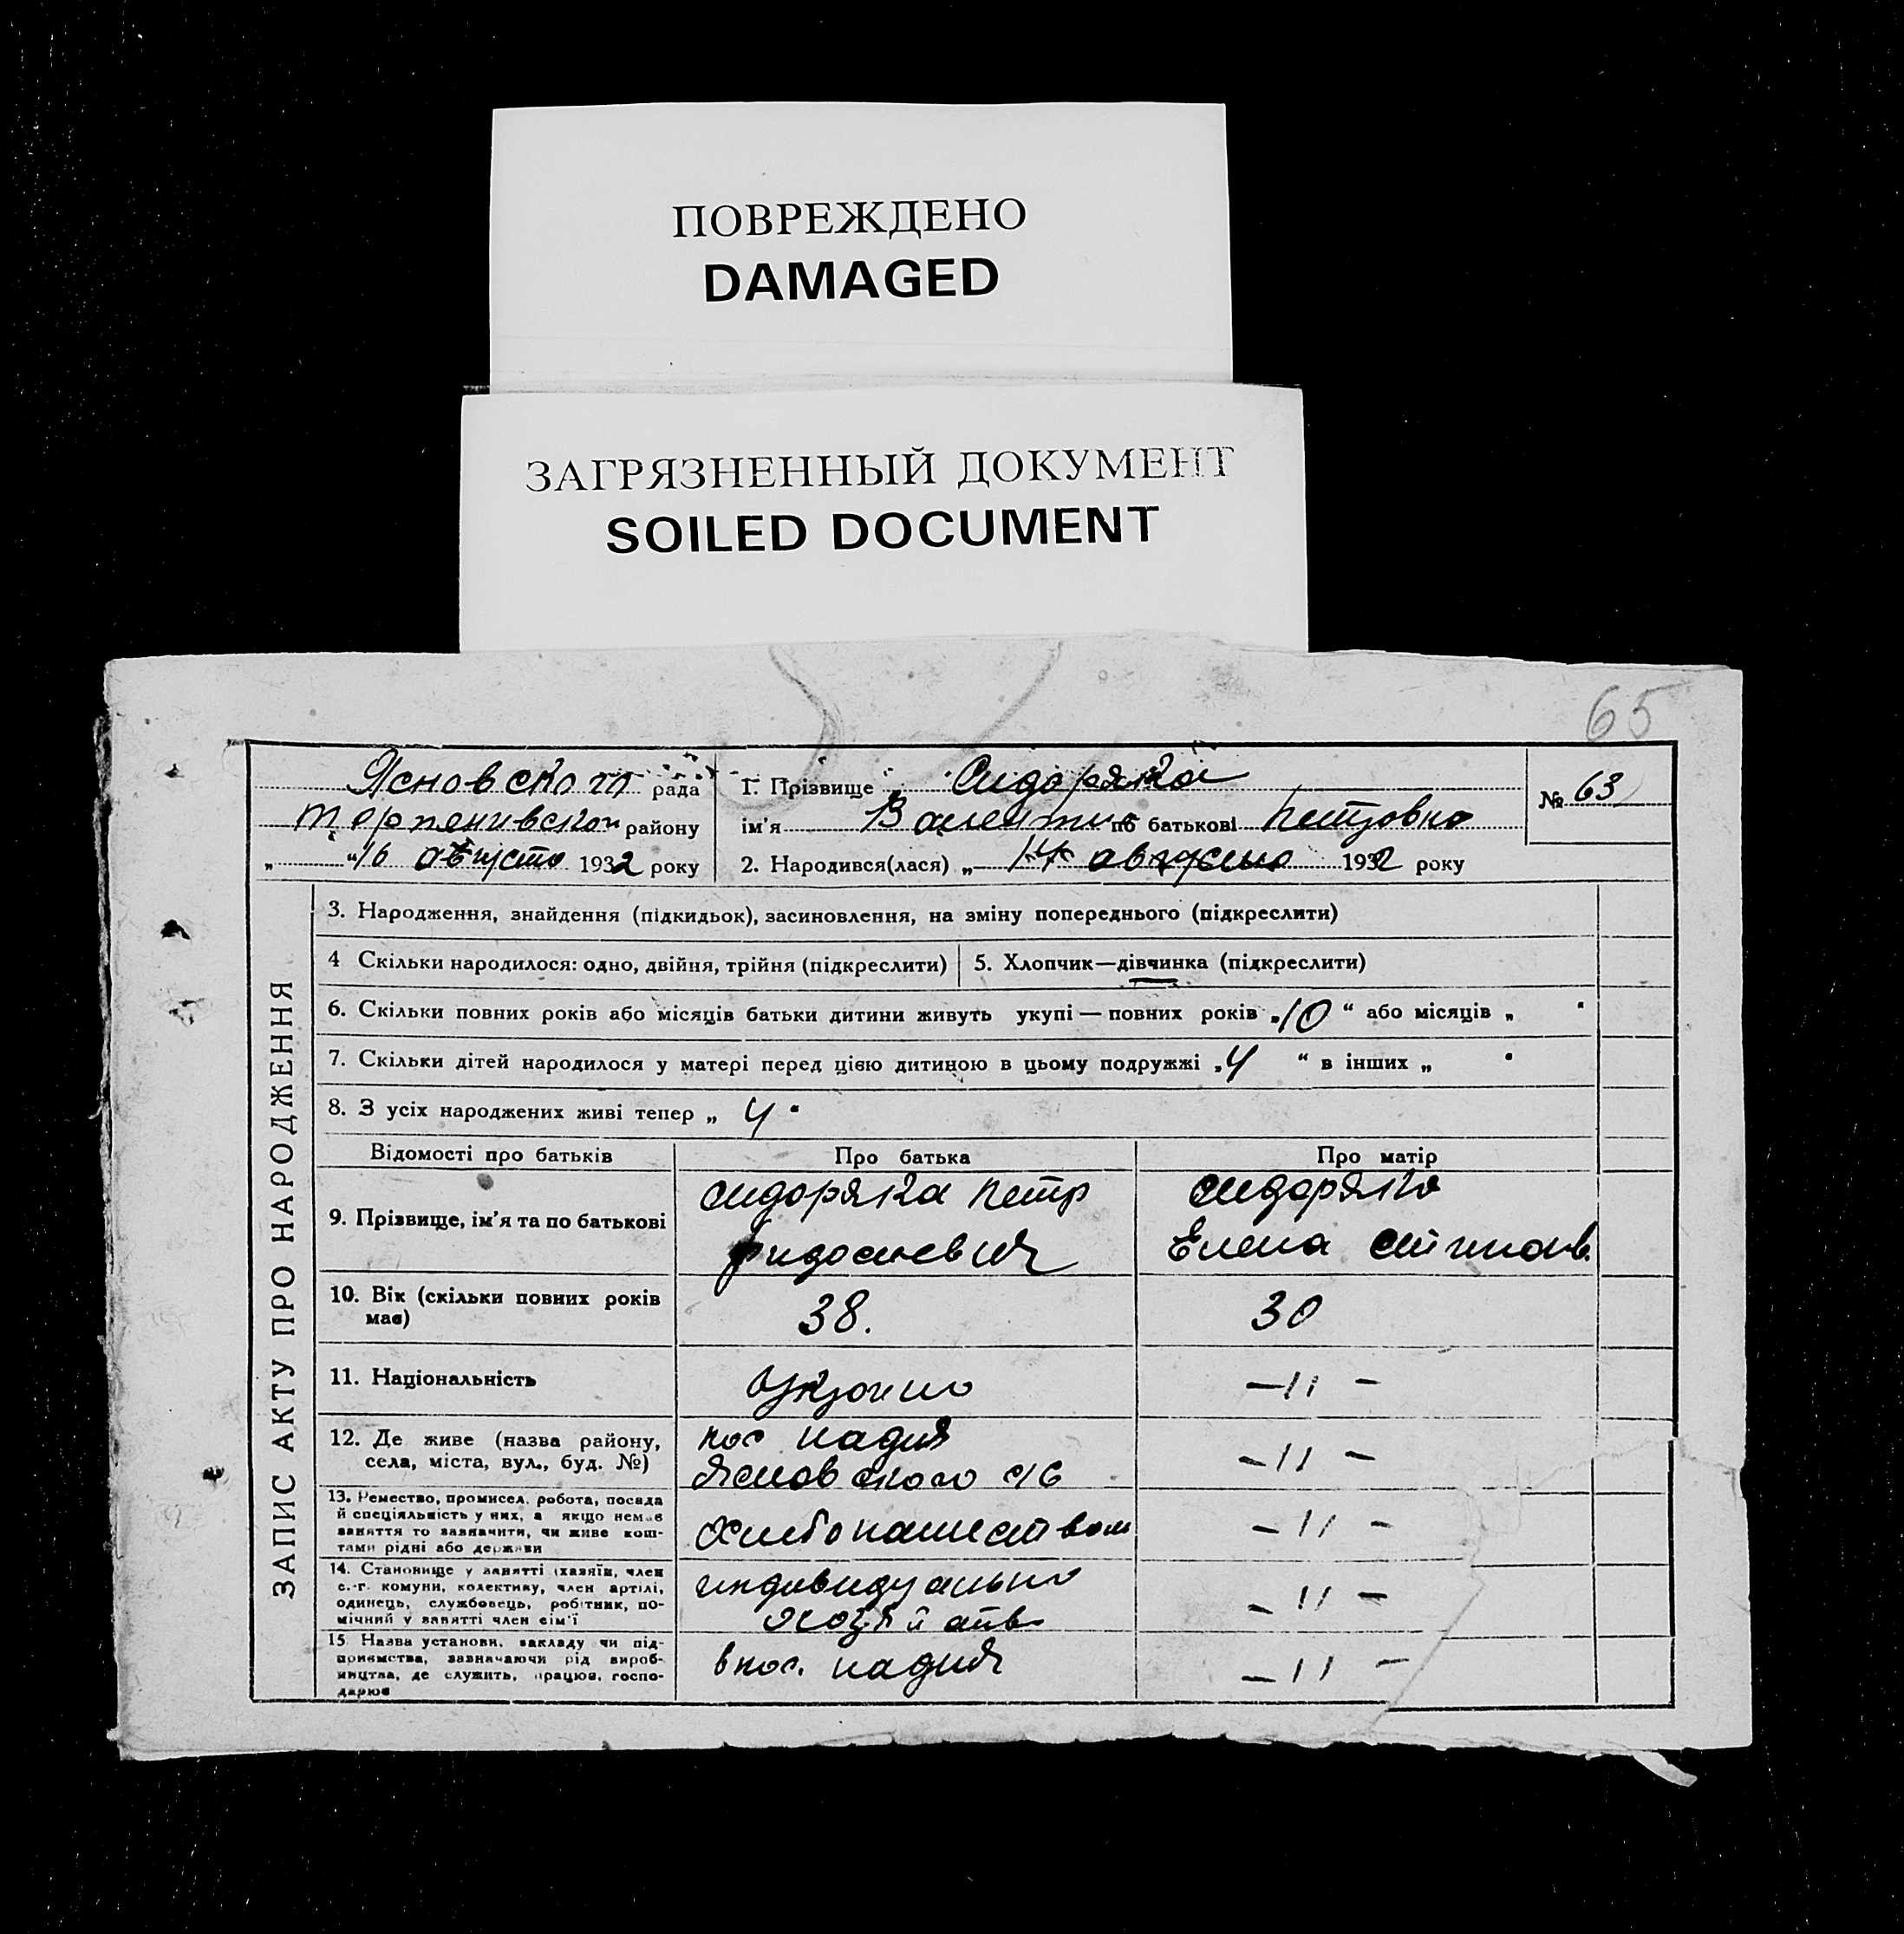 ПОВРЕЖДЕНО
DAMAGED
ЗАГРЯЗНЕННЫЙ ДОКУМЕНТ
SOILED DOCUMENT
65
ЗАПИС АКТУ ПРО НАРОДЖЕННЯ
Ясновского рада
району
„ 16 августа 1932 року
1. Прізвище Сидоряка
ім'я Валенти по батькові Петровна
№ 63
2. Народився(лася) „ 14 1932 року
3. Народження, знайдення (підкидьок), засиновлення, на зміну попереднього (підкреслити)
4 Скільки народилося: одно, двійня, трійня (підкреслити)
5. Хлопчик—дівчинка (підкреслити)
6. Скільки повних років або місяців батьки дитини живуть укупі — повних років „10“ або місяців „
7. Скільки дітей народилося у матері перед цією дитиною в цьому подружжі „4 “ в інших „
8. З усіх народжених живі тепер „ 4
Відомості про батьків
Про батька
Про матір
9. Прізвище, ім'я та по батькові
сидоряка петр
сидоряка
Елена
10. Вік (скільки повних років
має)
38.
30
11. Національність
— 11 —
12. Де живе (назва району,
села, міста, вул., буд. №)
пос надия
Ясновского с/с
— 11 —
13. Ремество, промисел, робота, посада
й спеціяльність у них, а якщо немає
заняття то зазначити, чи живе кош-
тами рідні або держави
хлебопашеством
— 11 —
14. Становище у занятті (хазяїн, член
с.-г. комуни, колективу, член артілі,
одинець, службовець, робітник, по-
мічний у занятті член сім'ї
индивидуально
— 11 —
15 Назва установи, закладу чи під-
приємства, зазначаючи рід вироб-
ництва, де служить, працює, госпо-
дарює
в пос. надия
— 11 —